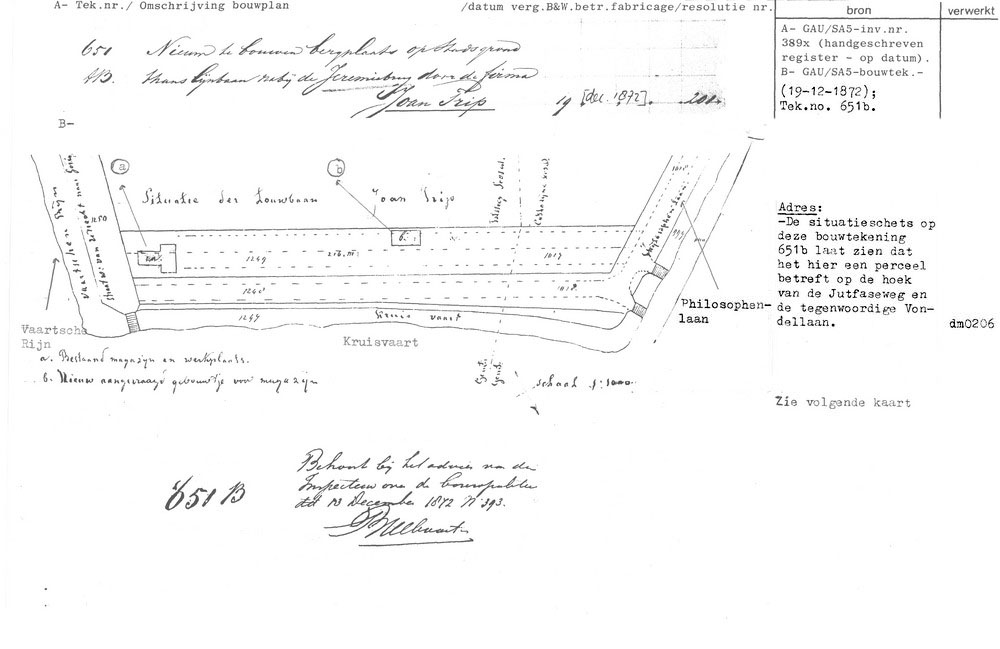 A- Tek.nr./ Omschrijving bouwplan
/datum verg.B&W.betr.fabricage/resolutie nr.
bron
verwerkt
651 Nieuw te bouwen bergplaats op Stadsgrond
4B. thans lijnbaan nabij de Jeremiebrug door de firma
Joan Trip 19 [dec. 1872].
A- GAU/SA5-inv.nr.
389x (handgeschreven
register - op datum).
B- GAU/SA5-bouwtek.-
(19-12-1872);
Tek.no. 651b.
B-
a
b
Situatie der Touwbaan Joan Trip
Vaartschen Rijn
1250
b.
1249
216. m.
1017
1248
1018
1247
Kruis vaart
999
Philosophen-
laan
Vaartsche
Rijn
Kruisvaart
a. Bestaand magazijn en werkplaats.
b. Nieuw aangevraagd gebouwtje voor magazijn
schaal 1:1000
Adres:
-De situatieschets op
deze bouwtekening
651b laat zien dat
het hier een perceel
betreft op de hoek
van de Jutfaseweg en
de tegenwoordige Von-
dellaan.
dm0206
Zie volgende kaart
651 B
Behoort bij het advies van den
Inspecteur over de bouwpolitie
dd 13 December 1872 N 393.